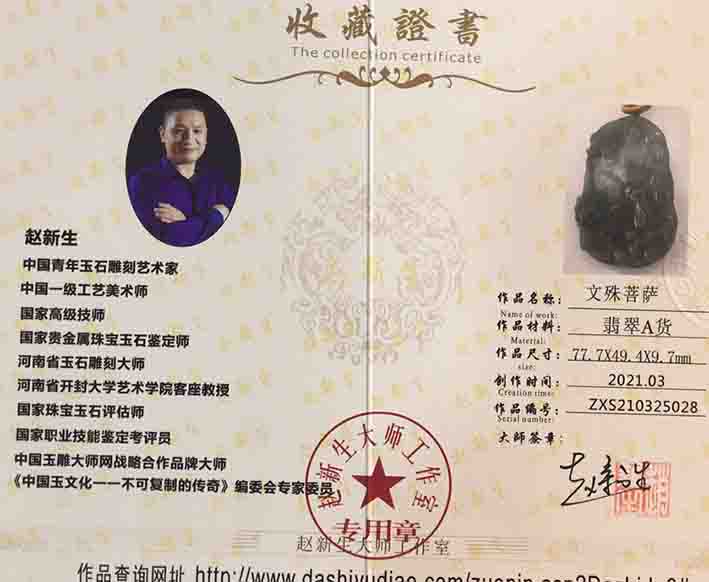 收藏證書
The collection certificate
赵新生
中国青年玉石雕刻艺术家
中国一级工艺美术师
国家高级技师
国家贵金属珠宝玉石鉴定师
河南省玉石雕刻大师
河南省开封大学艺术学院客座教授
国家珠宝玉石评估师
国家职业技能鉴定考评员
中国玉雕大师网战略合作品牌大师
《中国玉文化一一不可复制的传奇》编委会专家委员
作品名称: 文殊菩萨
Name of work:
作品材料: 翡翠A货
Material:
作品尺寸: 77.7X49.4X9.7mm
size:
创作时间: 2021.03
Creation time:
作品编号: ZXS210325028
Serial number:
大师签章:
赵新生
赵新生大师工作室
专用章
赵新生大师工作室
作品查询网址 http://www.dashiyudiao.com/zuopin.asp?